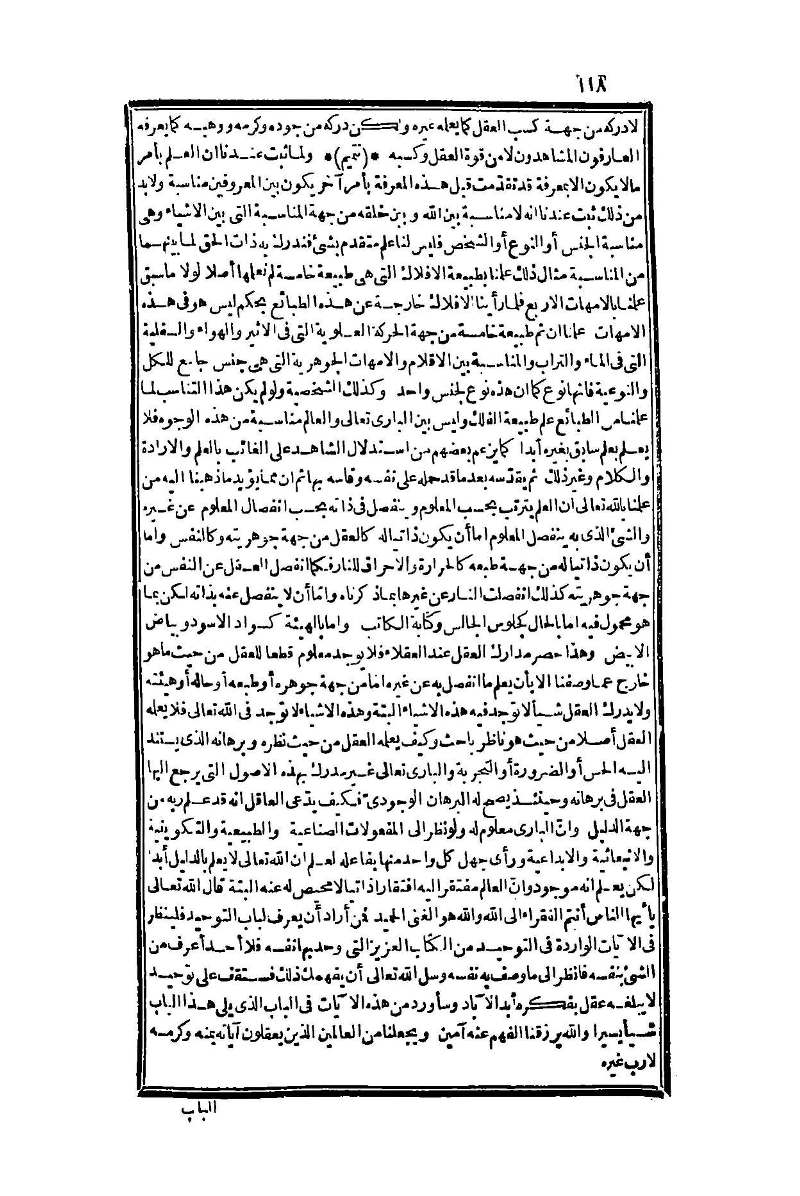 ١١٨
لا دركه من جهة كسب العقل كما يعلمه غيره ولكن دركه من جوده وكرمه ووهبه كما يعرفه
العارفون المشاهدون لا من قوة العقل وكسبه *(تتميم)* ولما ثبت عندنا ان العلم بأمر
ما لا يكون الا بمعرفة قد تقدمت قبل هذه المعرفة بأمر آخر يكون بين المعروفين مناسبة ولا بد
من ذلك ثبت عندنا انه لا مناسبة بين الله وبين خلقه من جهة المناسبة التى بين الاشياء وهى
مناسبة الجنس أو النوع أو الشخص فليس لنا علم متقدم بشئ فندرك به ذات الحق لما بينهما
من المناسبة مثال ذلك علمنا بطبيعة الافلاك التى هى طبيعة خامسة لم نعلمها أصلا لولا ما سبق
علمنا بالامهات الاربع فلما رأينا الافلاك خارجة عن هذه الطبائع بحكم ليس هو فى هذه
الامهات علمنا ان ثم طبيعة خامسة من جهة الحركة العلوية التى فى الاثير والهواء والسفلية
التى فى الماء والتراب والمناسبة بين الافلام والامهات الجوهرية التى هى جنس جامع للكل
والنوعية فانها نوع كما ان هذه نوع لجنس واحد وكذلك الشخصية ولو لم يكن هذا التناسب لما
علمنا من الطبائع علم طبيعة الفلك وليس بين البارى تعالى والعالم مناسبة من هذه الوجوه فلا
يعلم بعلم سابق بغيره أبدا كما يزعم بعضهم من استدلال الشاهد على الغائب بالعلم والارادة
والكلام وغير ذلك ثم يقدسه بعد ما قد حمله على نفسه وقاسه بها ثم ان مما يؤيد ما ذهبنا اليه من
علمنا بالله تعالى أن العلم يترتب بحسب المعلوم وينفصل فى ذاته بحسب انفصال المعلوم عن غيره
والشئ الذى به ينفصل المعلوم اما أن يكون ذاتيا له كالعقل من جهة جوهريته وكالنفس واما
أن يكون ذاتيا له من جهة طبعه كالحرارة والاحراق للنار فكما انفصل العقل عن النفس من
جهة جوهريته كذلك انفصلت النار عن غيرها بما ذكرناه واما أن لا ينفصل عنه بذاته لكن بما
هو محمول فيه اما بالحال كجلوس الجالس وكتابة الكاتب واما بالهيئة كسواد الاسود وبياض
الابيض وهذا حصر مدارك العقل عند العقلاء فلا يوجد معلوم قطعا للعقل من حيث ما هو
خارج عما وصفنا الا بأن يعلم ما انفصل به عن غيره اما من جهة جوهره أو طبعه أو حاله أو هيئته
ولا يدرك العقل شيأ لا توجد فيه هذه الاشياء البتة وهذه الاشياء لا توجد فى الله تعالى فلا يعلمه
العقل أصلا من حيث هو ناظر باحث وكيف يعلمه العقل من حيث نظره وبرهانه الذى يستند
اليه الحس أو الضرورة أو التجربة والبارى تعالى غير مدرك بهذه الاصول التى يرجع اليها
العقل فى برهانه وحينئذ يصح له البرهان الوجودى فكيف يدعى العاقل انه قد علم ربه من
جهة الدليل وان البارى معلوم له ولو نظر الى المفعولات الصناعية والطبيعية والتكوينية
والانبعاثية والابداعية ورأى جهل كل واحد منها بفاعله لعلم ان الله تعالى لا يعلم بالدليل أبدا
لكن يعلم انه موجود وان العالم مفتقر اليه افتقارا ذاتيا لا محيص له عنه البتة قال الله تعالى
يا أيها الناس أنتم الفقراء الى الله والله هو الغنى الحميد فمن أراد أن يعرف لباب التوحيد فلينظر
فى الآيات الواردة فى التوحيد من الكتاب العزيز التى وحد بها نفسه فلا أحد أعرف من
الشئ بنفسه فانظر الى ما وصف به نفسه وسل الله تعالى أن يفهمك ذلك فستقف على توحيد
لا يبلغه عقل بفكره أبد الآباد وسأورد من هذه الآيات فى الباب الذى يلى هذا الباب
شيأ يسيرا والله يرزقنا الفهم عنه آمين ويجعلنا من العالمين الذين يعقلون آياته بمنه وكرمه
لا رب غيره
الباب